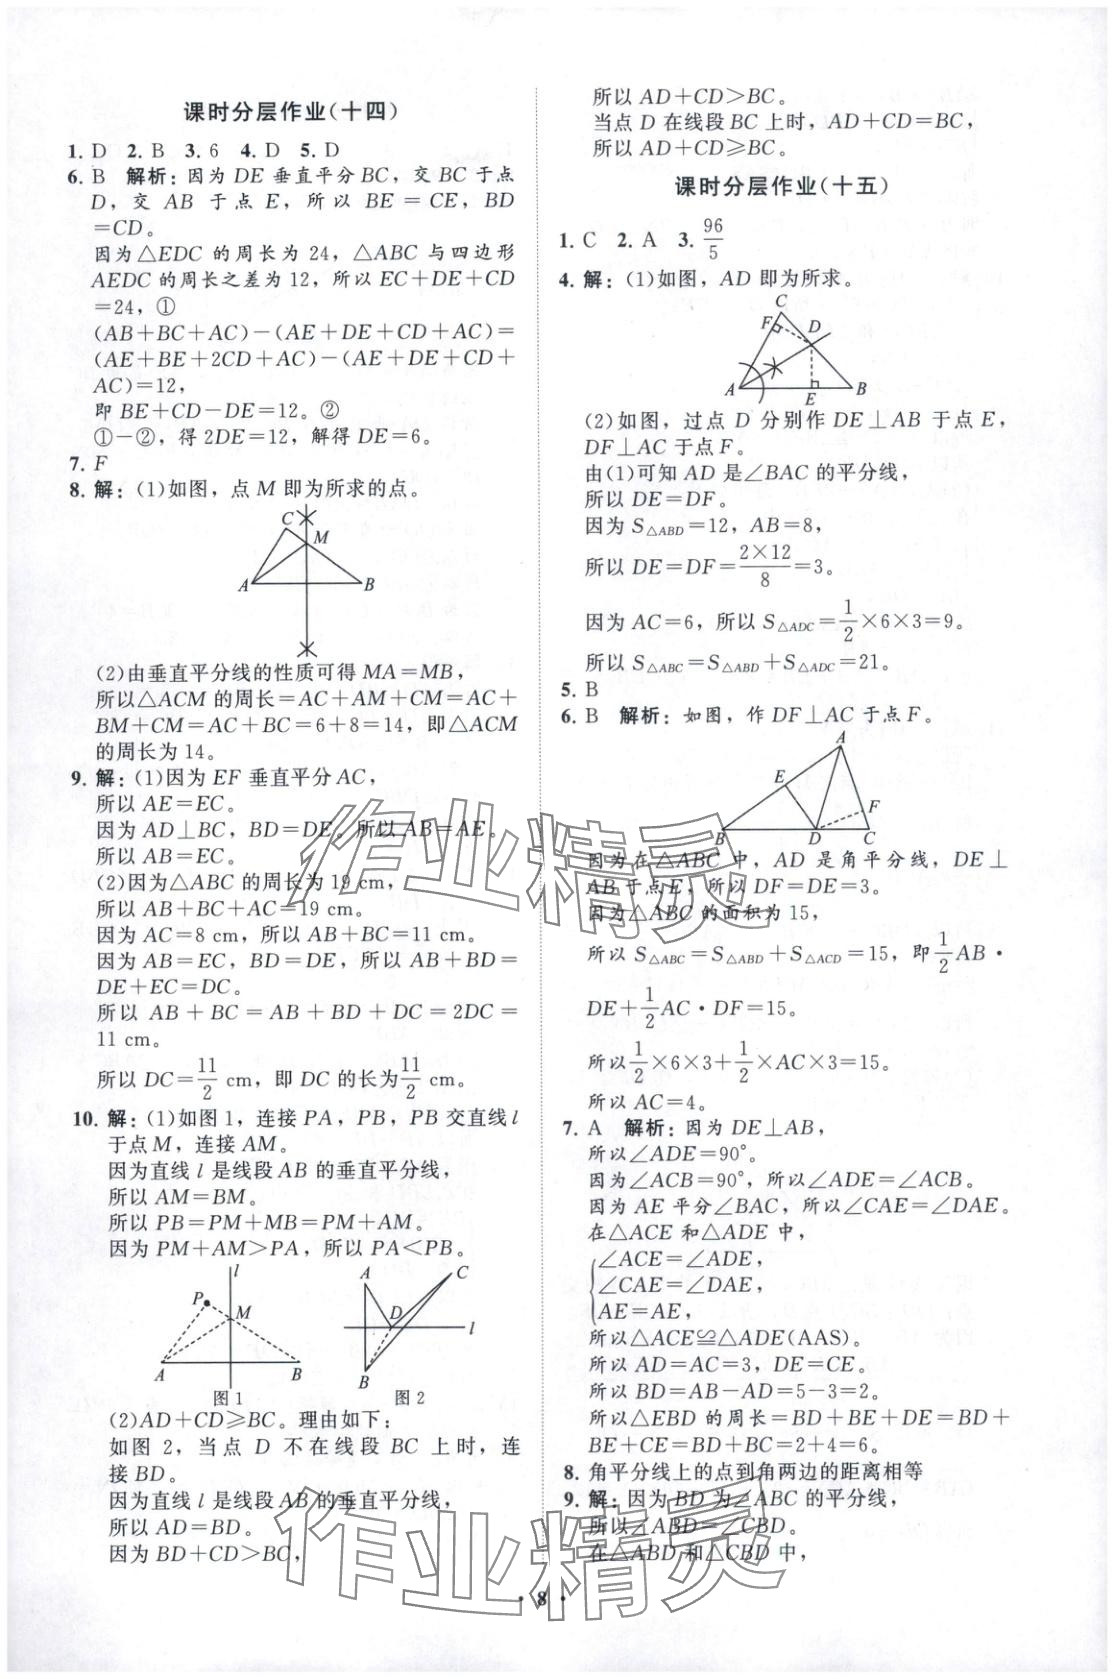 课时分层作业(十四)
1. D 2. B 3. 6 4. D 5. D
6. B 解析：因为 DE 垂直平分 BC，交 BC 于点
D，交 AB 于点 E，所以 BE＝CE，BD
＝CD。
因为△EDC 的周长为 24，△ABC 与四边形
AEDC 的周长之差为 12，所以 EC＋DE＋CD
＝24，①
(AB＋BC＋AC)－(AE＋DE＋CD＋AC)＝
(AE＋BE＋2CD＋AC)－(AE＋DE＋CD＋
AC)＝12，
即 BE＋CD－DE＝12。②
①－②，得 2DE＝12，解得 DE＝6。
7. F
8. 解：(1)如图，点 M 即为所求的点。
C
M
A
B
(2)由垂直平分线的性质可得 MA＝MB，
所以△ACM 的周长＝AC＋AM＋CM＝AC＋
BM＋CM＝AC＋BC＝6＋8＝14，即△ACM
的周长为 14。
9. 解：(1)因为 EF 垂直平分 AC，
所以 AE＝EC。
因为 AD⊥BC，BD＝DE。所以 AB＝AE。
所以 AB＝EC。
(2)因为△ABC 的周长为 19 cm，
所以 AB＋BC＋AC＝19 cm。
因为 AC＝8 cm，所以 AB＋BC＝11 cm。
因为 AB＝EC，BD＝DE，所以 AB＋BD＝
DE＋EC＝DC。
所以 AB＋BC＝AB＋BD＋DC＝2DC＝
11 cm。
所以 DC＝11/2 cm，即 DC 的长为 11/2 cm。
10. 解：(1)如图 1，连接 PA，PB，PB 交直线 l
于点 M，连接 AM。
因为直线 l 是线段 AB 的垂直平分线，
所以 AM＝BM。
所以 PB＝PM＋MB＝PM＋AM。
因为 PM＋AM＞PA，所以 PA＜PB。
l
P
M
A
B
图 1
A
C
D
l
B
图 2
(2)AD＋CD≥BC。理由如下：
如图 2，当点 D 不在线段 BC 上时，连
接 BD。
因为直线 l 是线段 AB 的垂直平分线，
所以 AD＝BD。
因为 BD＋CD＞BC，
所以 AD＋CD＞BC。
当点 D 在线段 BC 上时，AD＋CD＝BC，
所以 AD＋CD≥BC。
课时分层作业(十五)
1. C 2. A 3. 96/5
4. 解：(1)如图，AD 即为所求。
C
F
D
A
E
B
(2)如图，过点 D 分别作 DE⊥AB 于点 E，
DF⊥AC 于点 F。
由(1)可知 AD 是∠BAC 的平分线，
所以 DE＝DF。
因为 S△ABD＝12，AB＝8，
所以 DE＝DF＝2×12/8＝3。
因为 AC＝6，所以 S△ADC＝1/2×6×3＝9。
所以 S△ABC＝S△ABD＋S△ADC＝21。
5. B
6. B 解析：如图，作 DF⊥AC 于点 F。
A
E
F
B
D
C
因为在△ABC 中，AD 是角平分线，DE⊥
AB 于点 E，所以 DF＝DE＝3。
因为△ABC 的面积为 15，
所以 S△ABC＝S△ABD＋S△ACD＝15，即 1/2 AB·
DE＋1/2 AC·DF＝15。
所以 1/2×6×3＋1/2×AC×3＝15。
所以 AC＝4。
7. A 解析：因为 DE⊥AB，
所以∠ADE＝90°。
因为∠ACB＝90°，所以∠ADE＝∠ACB。
因为 AE 平分∠BAC，所以∠CAE＝∠DAE。
在△ACE 和△ADE 中，
∠ACE＝∠ADE，
∠CAE＝∠DAE，
AE＝AE，
所以△ACE≌△ADE(AAS)。
所以 AD＝AC＝3，DE＝CE。
所以 BD＝AB－AD＝5－3＝2。
所以△EBD 的周长＝BD＋BE＋DE＝BD＋
BE＋CE＝BD＋BC＝2＋4＝6。
8. 角平分线上的点到角两边的距离相等
9. 解：因为 BD 为∠ABC 的平分线，
所以∠ABD＝∠CBD。
在△ABD 和△CBD 中，
作业精灵
作业精灵
· 8 ·